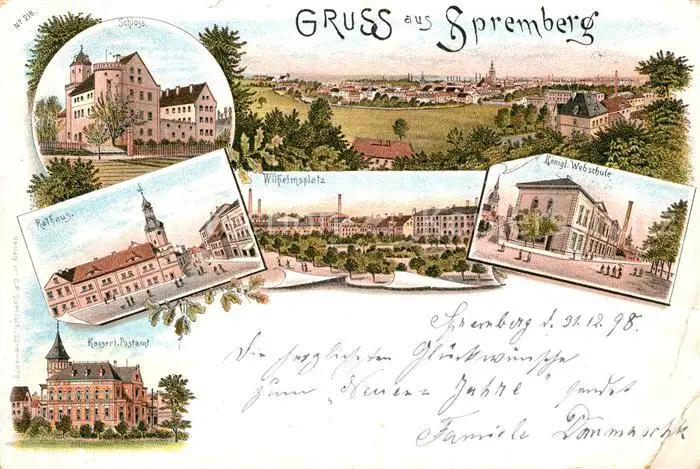 No 218.
Schloss.
GRUSS aus Spremberg
Wilhelmsplatz.
Königl. Webschule.
Rathaus.
Kaiserl. Postamt
Spremberg d. 31.12.98.
Die herzlichsten Glückwünsche
zum "Neuen Jahre" sendet
Familie Dammaschk